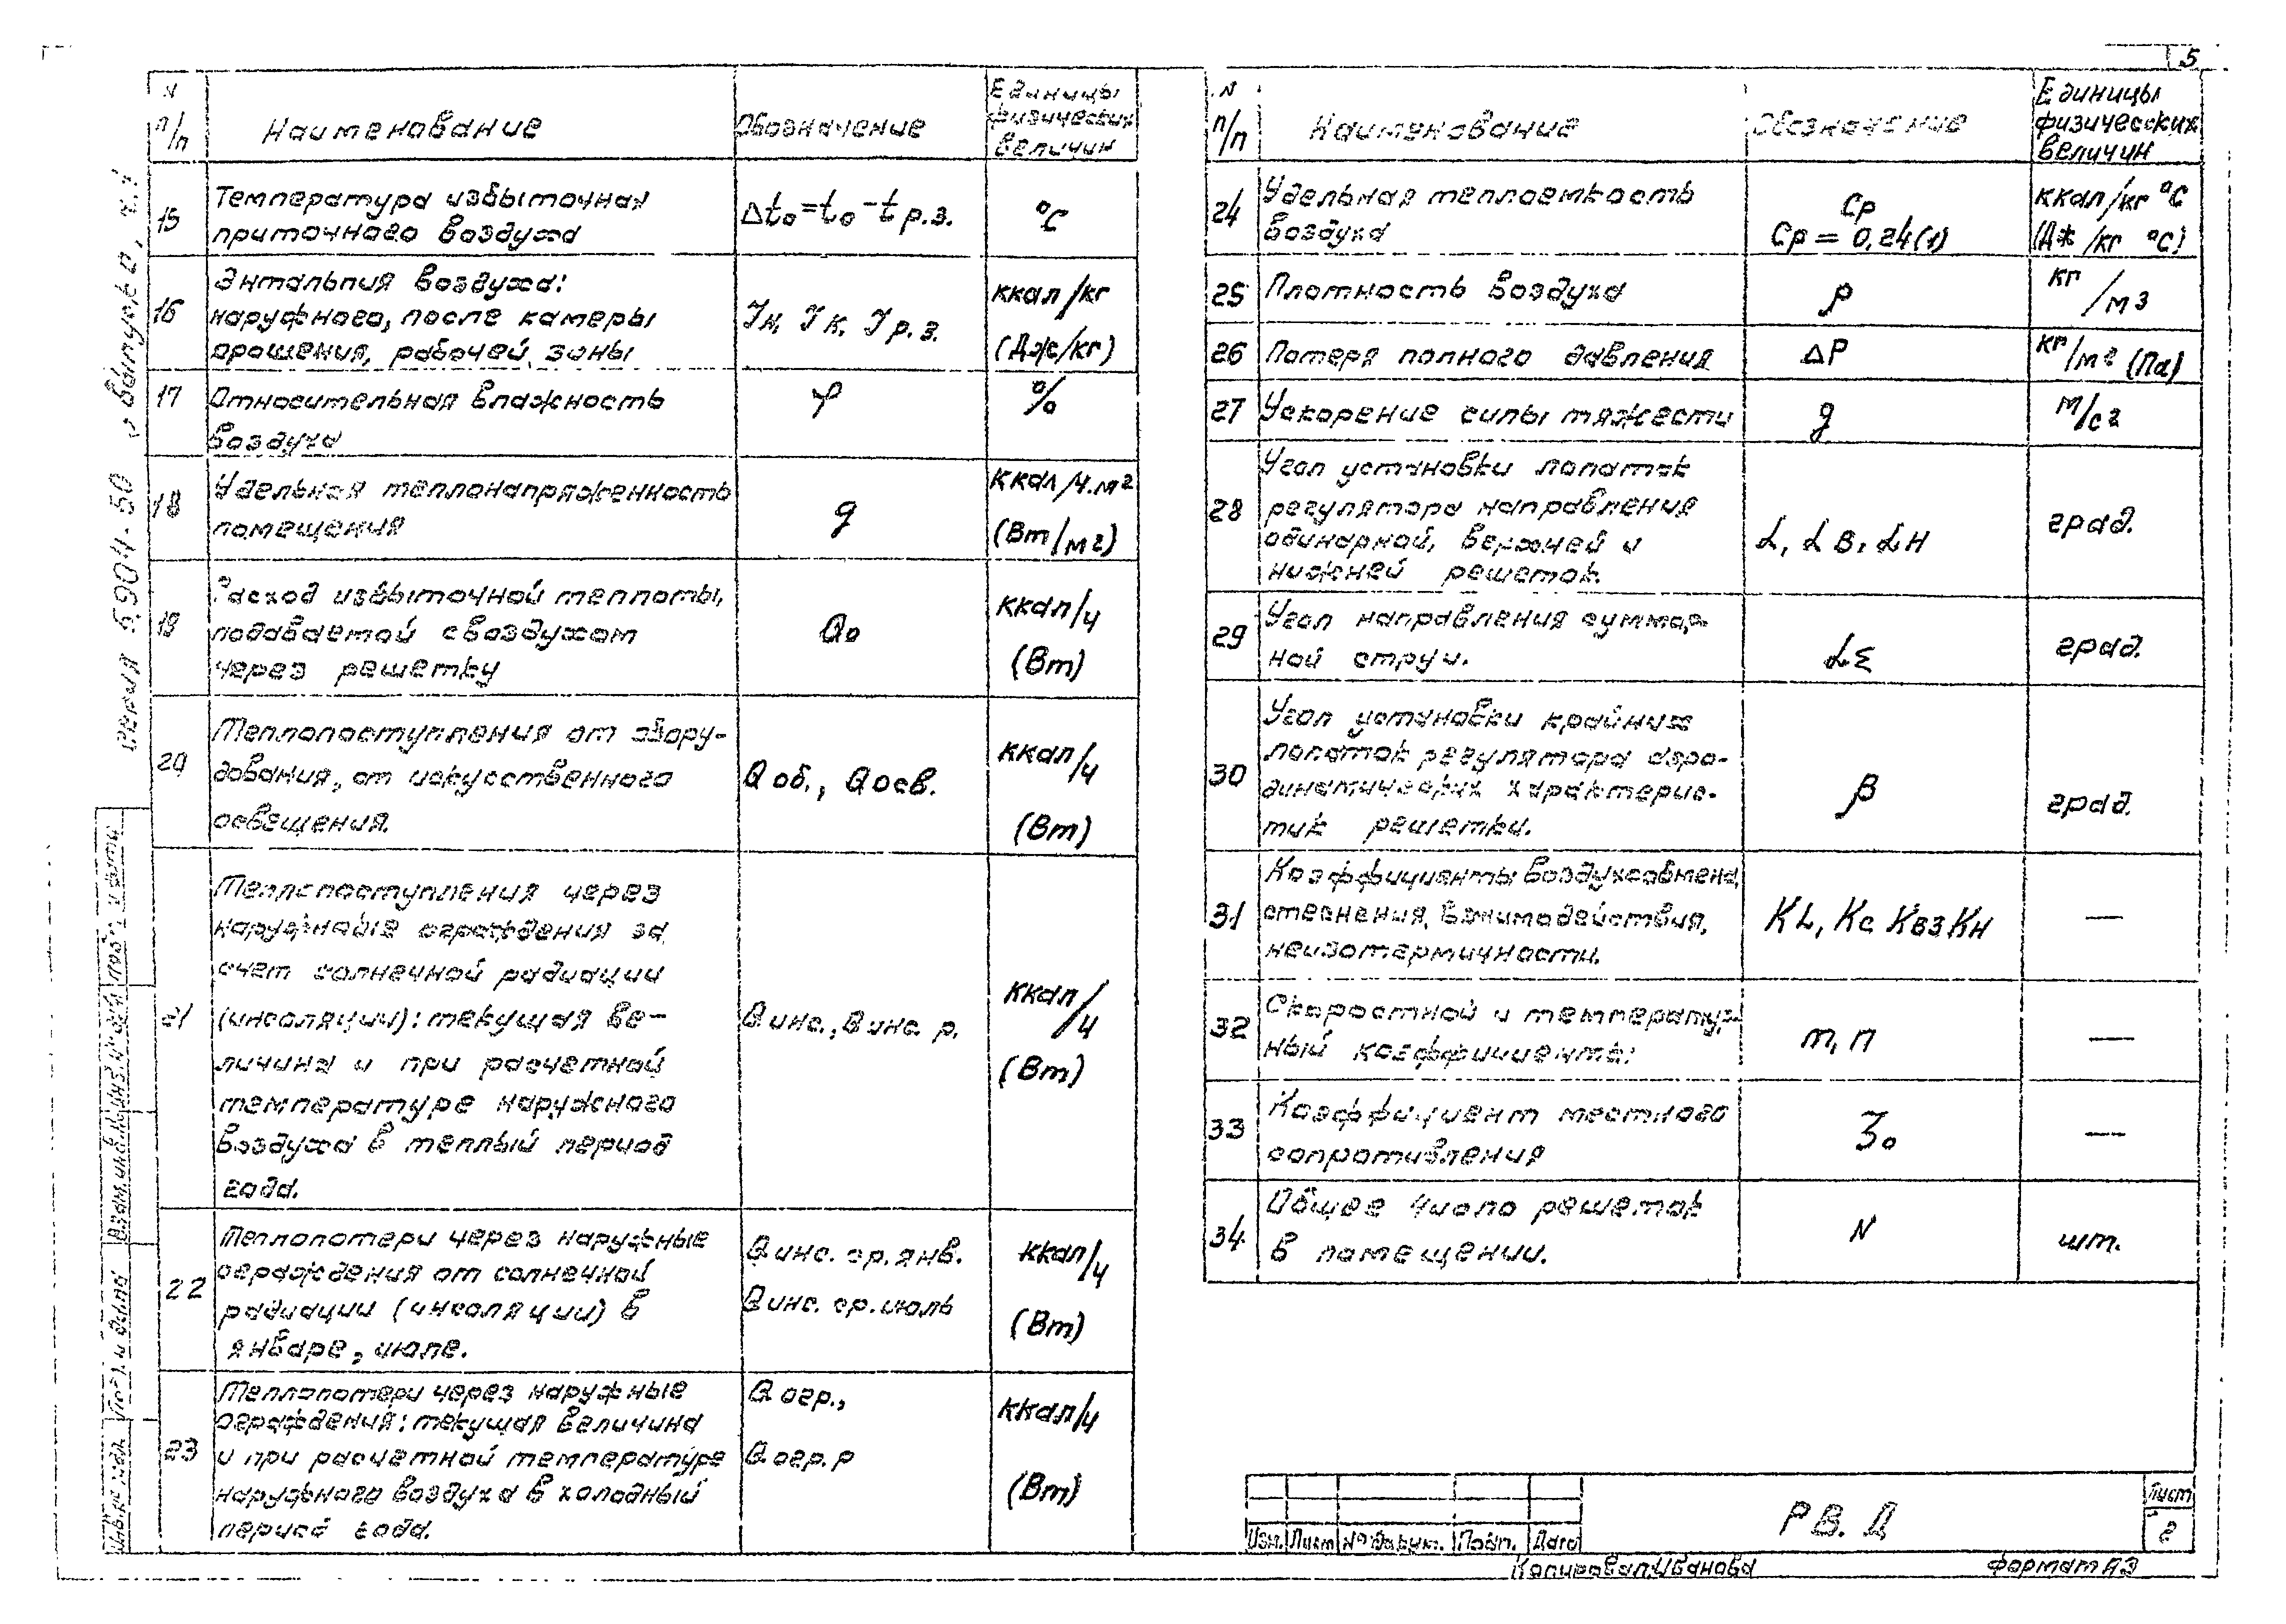 5
N п/п
Наименование
Обозначение
Единицы физических величин
15
Температура избыточная
приточного воздуха
Δto=to-tр.з.
°C
16
Энтальпия воздуха:
наружного, после камеры
орошения, рабочей зоны
Iн, Iк, Iр.з.
ккал/кг
(Дж/кг)
17
Относительная влажность
воздуха
φ
%
18
Удельная теплонапряженность
помещения
q
ккал/ч.м2
(Вт/м2)
19
Расход избыточной теплоты,
подаваемой с воздухом
через решетку
Qo
ккал/ч
(Вт)
20
Теплопоступления от обору-
дования, от искусственного
освещения.
Qоб., Qосв.
ккал/ч
(Вт)
21
Теплопоступления через
наружные ограждения за
счет солнечной радиации
(инсоляции): текущая ве-
личина и при расчетной
температуре наружного
воздуха в теплый период
года.
Qинс., Qинс. р.
ккал/ч
(Вт)
22
Теплопотери через наружные
ограждения от солнечной
радиации (инсоляции) в
январе, июле.
Qинс. ср. янв.
Qинс. ср. июль
ккал/ч
(Вт)
23
Теплопотери через наружные
ограждения: текущая величина
и при расчетной температуре
наружного воздуха в холодный
период года.
Qогр.,
Qогр. р
ккал/ч
(Вт)
N п/п
Наименование
Обозначение
Единицы
физических
величин
24
Удельная теплоемкость
воздуха
Cp
Cp = 0,24(1)
ккал/кг °C
(Дж/кг °C)
25
Плотность воздуха
ρ
кг/м3
26
Потеря полного давления
ΔP
кг/м2 (Па)
27
Ускорение силы тяжести
g
м/с2
28
Угол установки лопаток
регулятора направления
одинарной, верхней и
нижней решеток.
α, αв, αн
град.
29
Угол направления суммар-
ной струи.
αΣ
град.
30
Угол установки крайних
лопаток регулятора аэро-
динамических характерис-
тик решетки.
β
град.
31
Коэффициенты воздухообмена,
стеснения, взаимодействия,
неизотермичности.
KL, Kc Kвз Kн
—
32
Скоростной и температур-
ный коэффициенты:
m, n
—
33
Коэффициент местного
сопротивления
ζo
—
34
Общее число решеток
в помещении.
N
шт.
Серия 5.904-50 Выпуск 0, ч.1
Инв. № подл.
Подп. и дата
Взам. инв. №
Инв. № дубл.
Подп. и дата
Изм. Лист № докум. Подп. Дата
РВ. Д
Лист
2
Копировал: Иванова
Формат А3